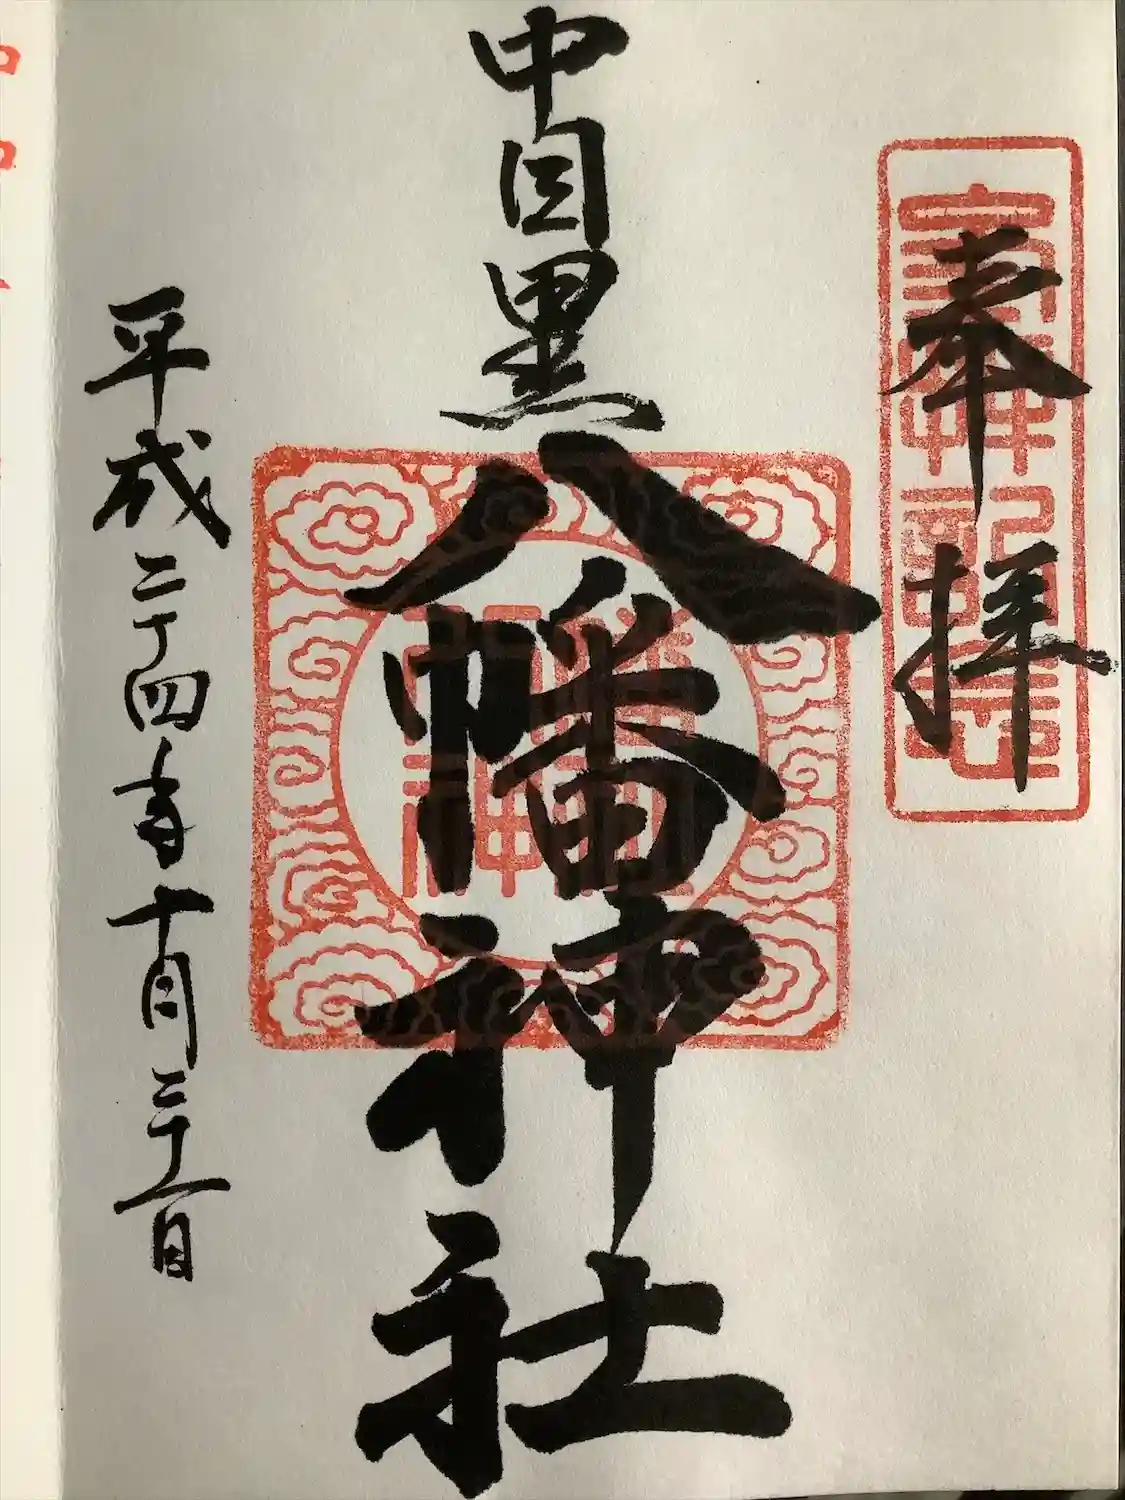 奉拝
中目黒八幡神社
平成二十四年十月二十一日